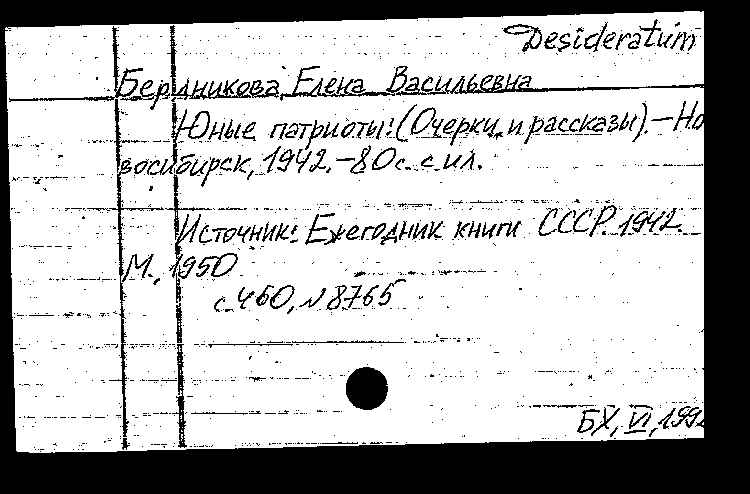 Desideratum
Бердникова, Елена Васильевна
Юные патриоты: (Очерки и рассказы). – Но
восибирск, 1942. – 80 с. с ил.
Источник: Ежегодник книги СССР. 1942.
М., 1950
с. 460, № 8765
БХ, VI, 199